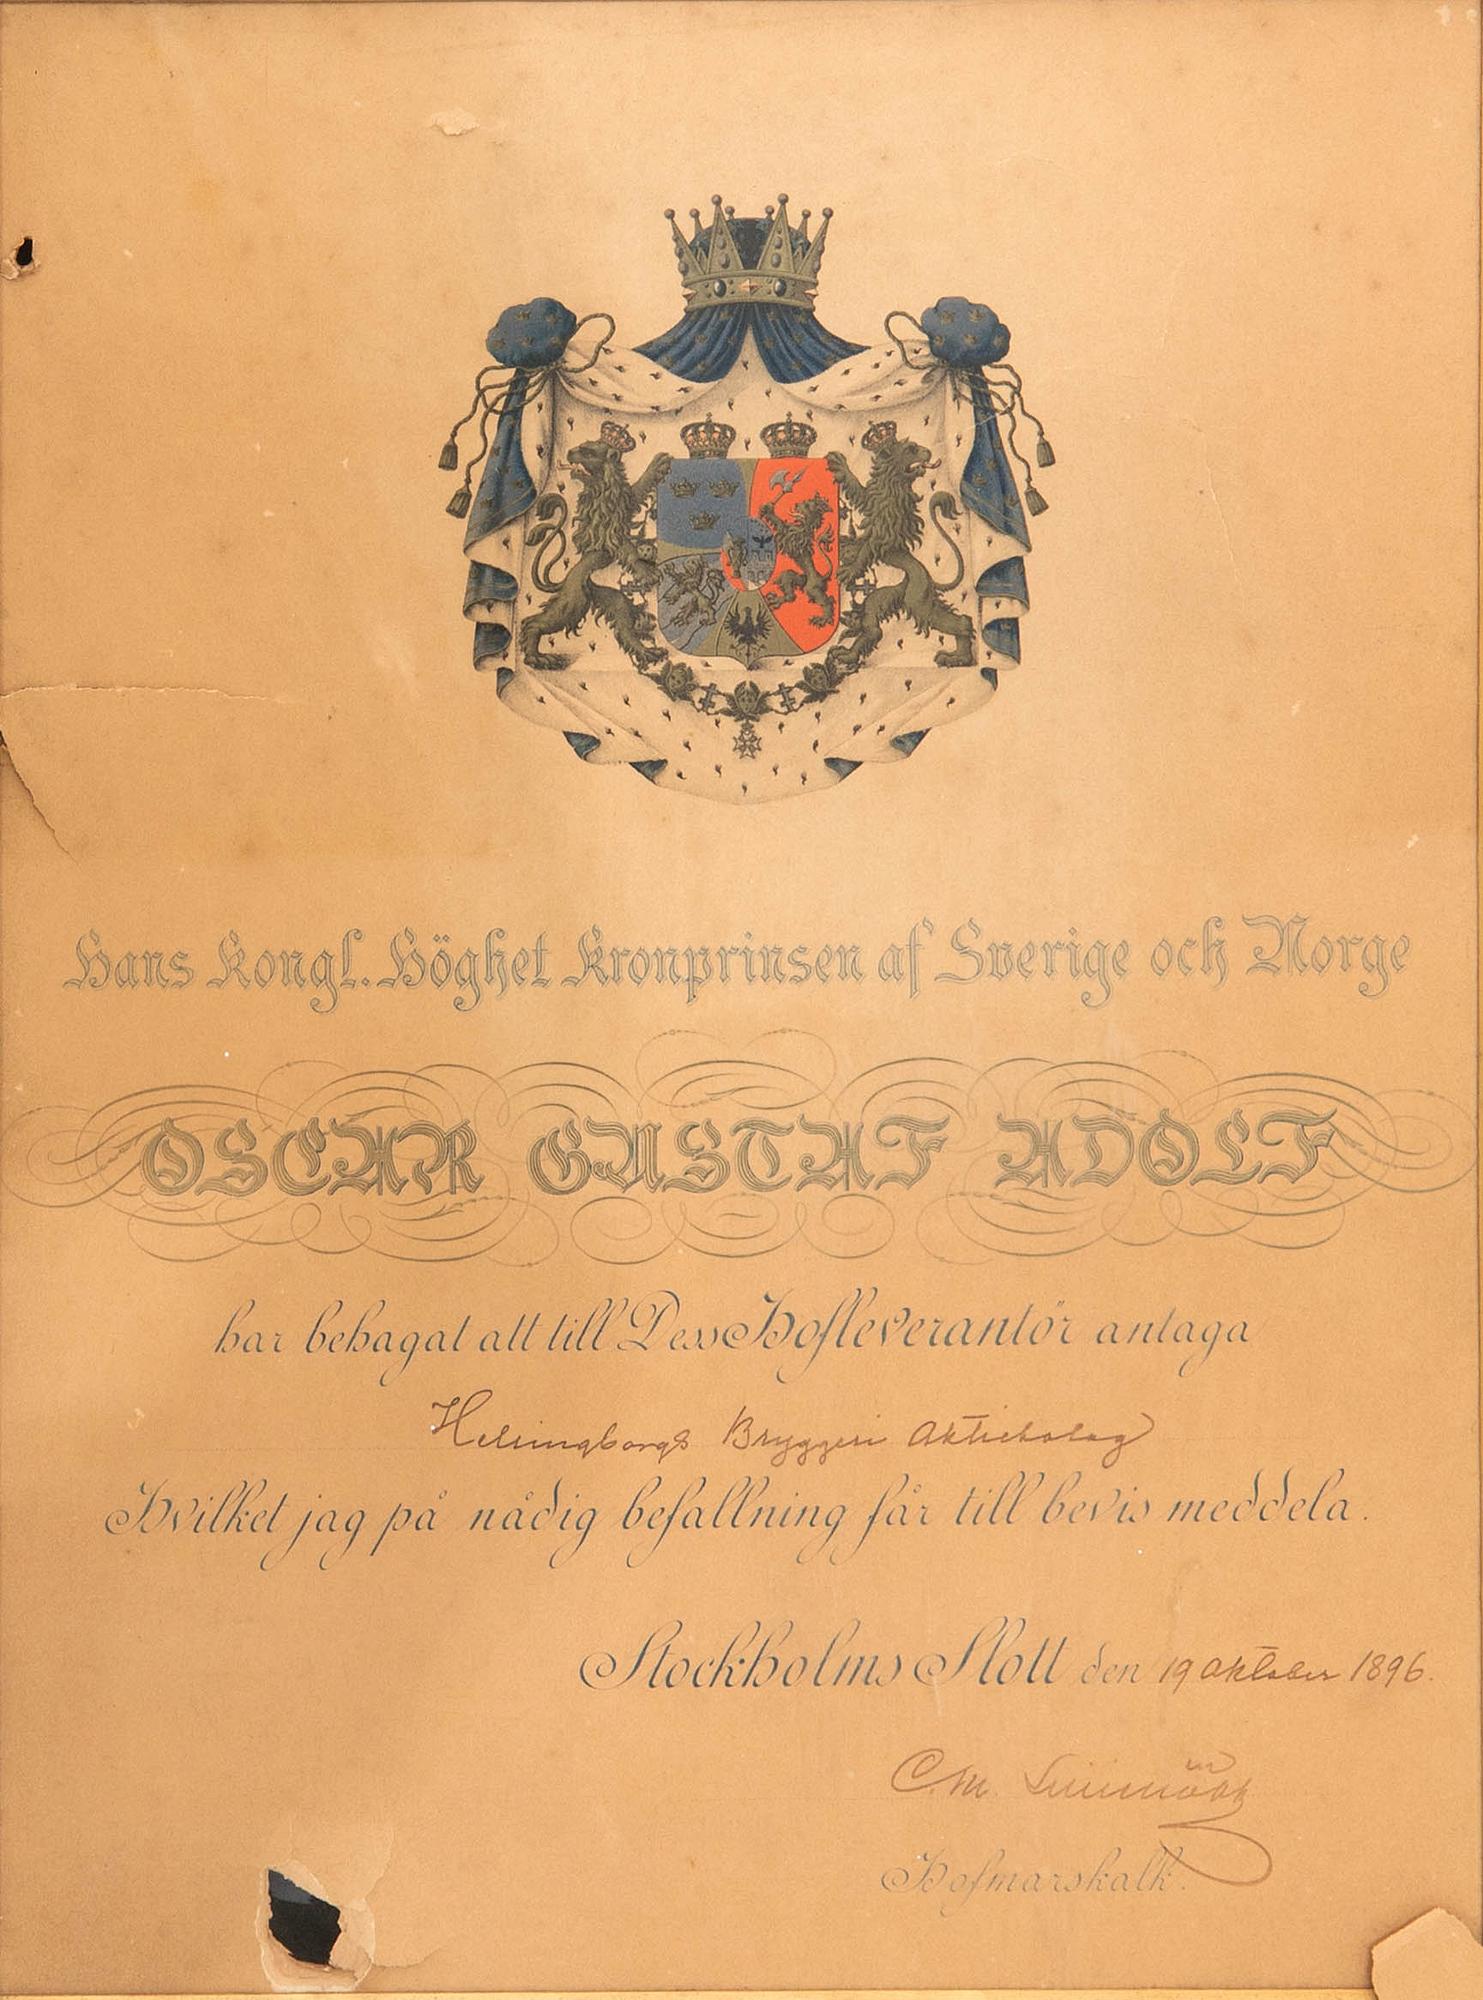 Hans Kongl. Höghet Kronprinsen af Sverige och Norge
OSCAR GUSTAF ADOLF
har behagat att till Dess Hofleverantör antaga
Helsingborgs Bryggeri Aktiebolag
Hvilket jag på nådig befallning får till bevis meddela.
Stockholms Slott den 19 Oktober 1896.
C. M.
Hofmarskalk.